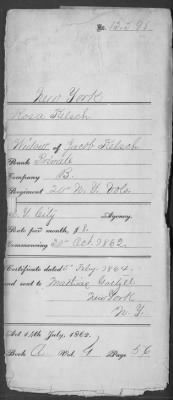 No. 13,398
New York
Rosa Kelsch
Widow of Jacob Kelsch
Rank Private
Company B.
Regiment 20" N.Y. Vols
N.Y. City Agency.
Rate per month, $8.
Commencing 20" Oct. 1862.
Certificate dated 5" Feby 1864.
and sent to
New York
N.Y.
Act 14th July, 1862.
Book A Vol. 4 Page 56